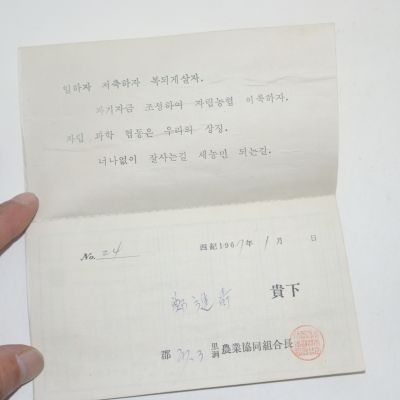 일하자 저축하자 복되게살자.
자기자금 조성하여 자립농협 이룩하자.
자립 과학 협동은 우리의 상징.
너나없이 잘사는길 새농민 되는길.
No. 24
西紀1967年 1月 日
貴下
郡 里洞 農業協同組合長